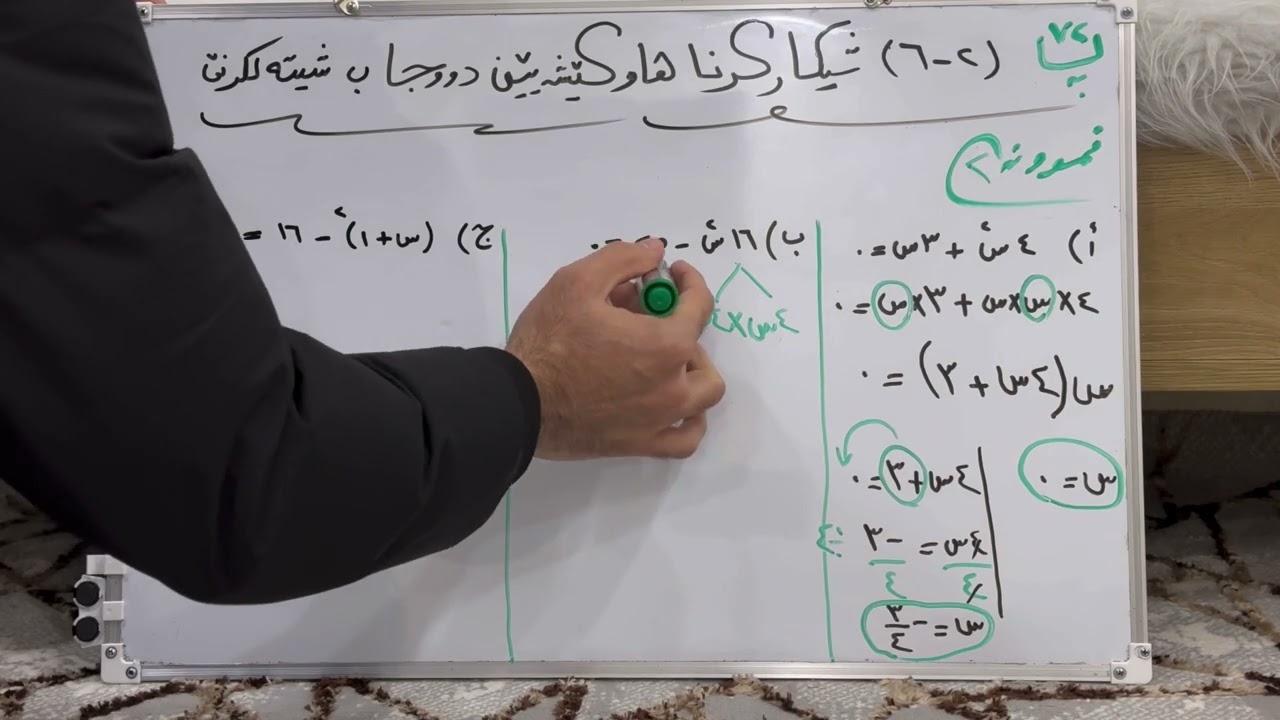 پ ٧٢
(٢-٦) شیکارکرنا هاوکێشەیێن دووجا ب شیتەلکرنێ
نموونە ٢
أ) ٤س² + ٣س = ٠
٤×س×س + ٣×س = ٠
س(٤س + ٣) = ٠
س = ٠
٤س + ٣ = ٠
٤س/٤ = -٣/٤ ÷٤
س = -٣/٤
ب) ١٦س² -
٤س×٤
ج) (س+١)² - ١٦ =